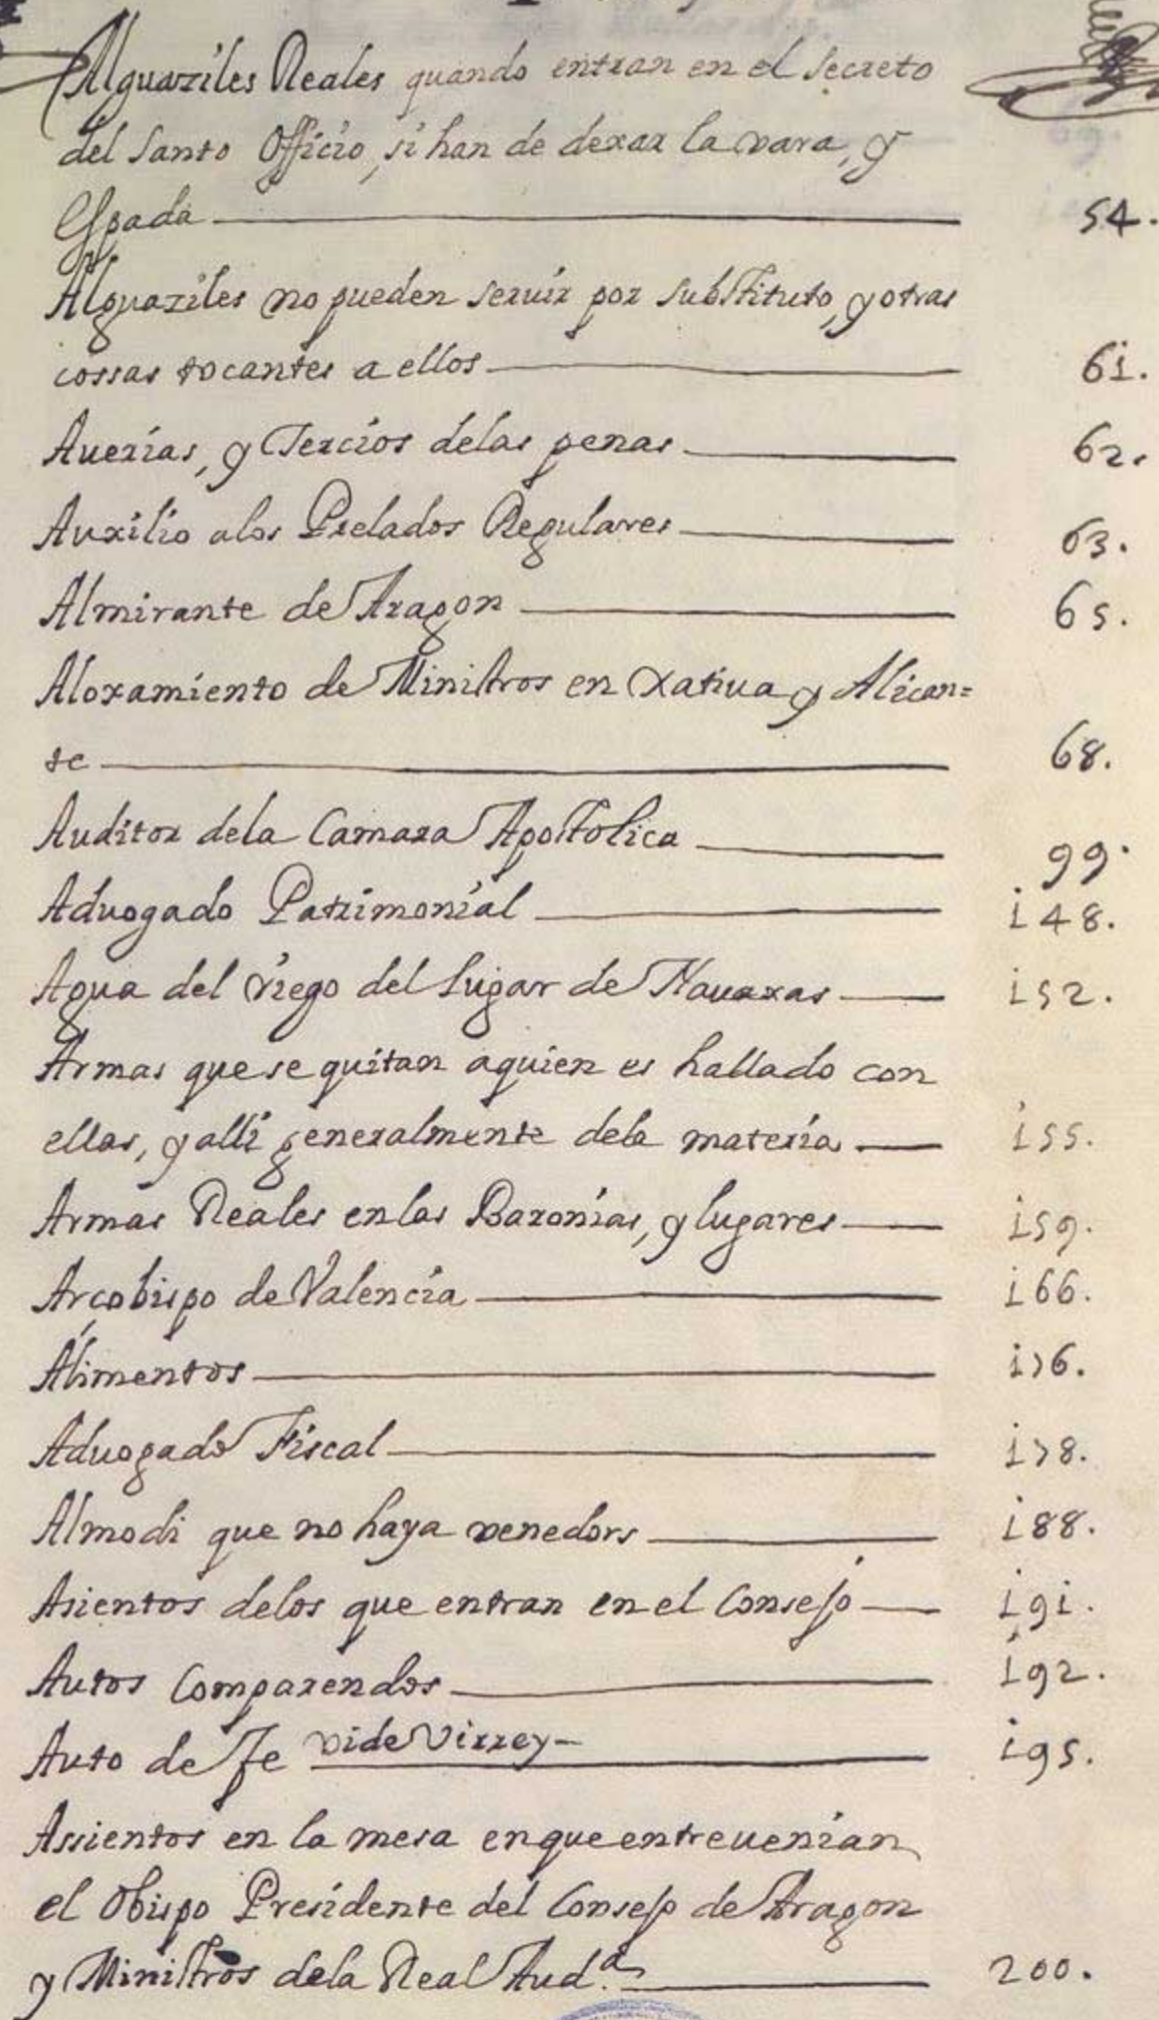 Alguaziles Reales quando entran en el Secreto
del Santo Officio, si han de dexar la vara, y
Espada 54.
Alguaziles no pueden seruir por substituto, y otras
cossas tocantes a ellos 61.
Auerias, y Tercios delas penas 62.
Auxilio alos Prelados Regulares 63.
Almirante de Aragon 65.
Aloxamiento de Ministros en Xatiua y Alican=
te 68.
Auditor dela Camara Apostolica 99.
Aduogado Patrimonial 148.
Agua del riego del lugar de Nauaxas 152.
Armas que se quitan aquien es hallado con
ellas, y alli generalmente dela materia 155.
Armas Reales en las Baronias, y lugares 159.
Arçobispo de Valencia 166.
Alimentos 176.
Aduogado Fiscal 178.
Almodi que no haya venedors 188.
Asientos delos que entran en el Consejo 191.
Autos Comparendos 192.
Auto de Fe vide Virrey 195.
Assientos en la mesa enque entreuenian
el Obispo Presidente del Consejo de Aragon
y Ministros dela Real Aud.a 200.